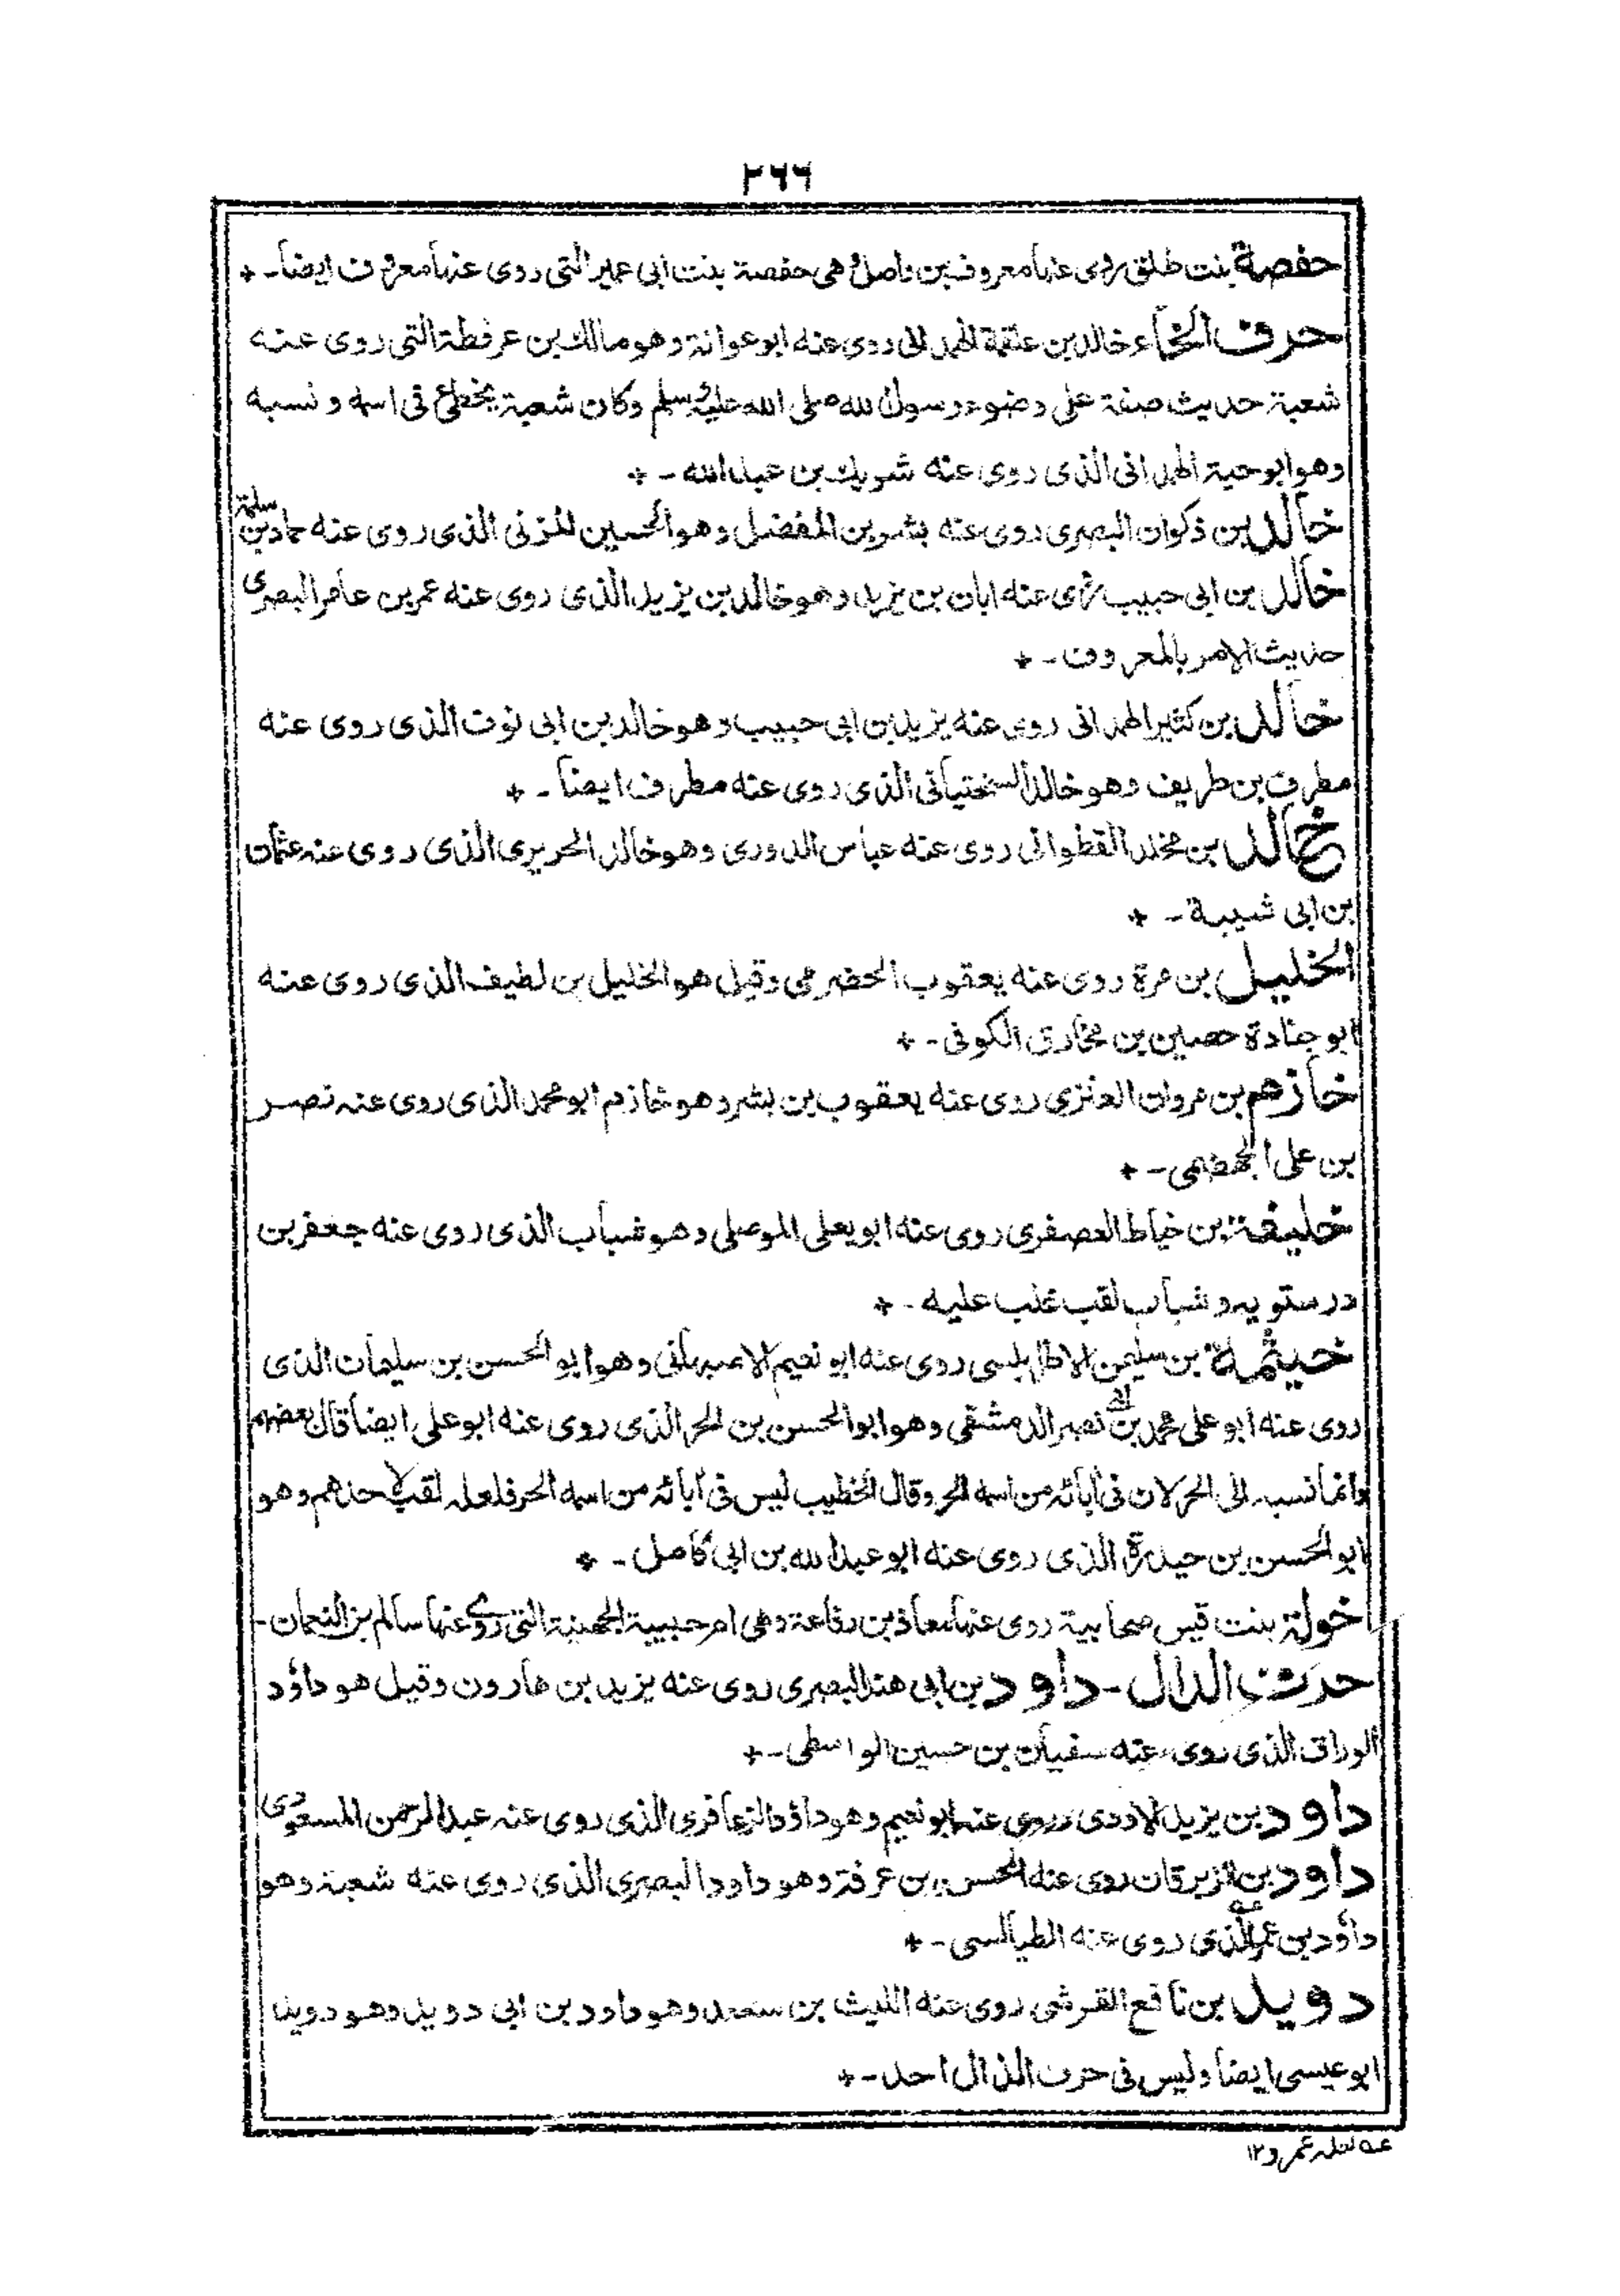 ٢٦٦
حفصة بنت طلق روى عنها معروف بن واصل وهي حفصة بنت ابى عمير التى روى عنها معروف ايضاً -
حرف الخاء خالد بن علقمة الهمدانى روى عنه ابو عوانة وهو مالك بن عرفطة التى روى عنه
شعبة حديث صفة على وضوء رسول الله صلى الله عليه وسلم وكان شعبة يخطئ فى اسمه ونسبه
وهو ابو حية الهمدانى الذى روى عنه شريك بن عبد الله -
خالد بن ذكوان البصرى روى عنه بشر بن المفضل وهو الحسين المزنى الذى روى عنه حماد بن سلمة
خالد بن ابى حبيب روى عنه ابان بن يزيد وهو خالد بن يزيد الذى روى عنه عمر بن عامر البصرى
حديث الامر بالمعروف -
خالد بن كثير الهمدانى روى عنه يزيد بن ابى حبيب وهو خالد بن ابى نوت الذى روى عنه
مطرف بن طريف وهو خالد السختيانى الذى روى عنه مطرف ايضاً -
خالد بن مخلد القطوانى روى عنه عباس الدورى وهو خالد الحريرى الذى روى عنه عثمان
بن ابى شيبة -
الخليل بن مرة روى عنه يعقوب الحضرمى وقيل هو الخليل بن لطيف الذى روى عنه
ابو جنادة حصين بن مخارق الكوفى -
خازم بن مروان العنزى روى عنه يعقوب بن بشر وهو خازم ابو محمد الذى روى عنه نصر
بن على الجهضمى -
خليفة بن خياط العصفرى روى عنه ابو يعلى الموصلى وهو شباب الذى روى عنه جعفر بن
درستويه وشباب لقب غلب عليه -
خيثمة بن سليمن الاطرابلسى روى عنه ابو نعيم الاصبهانى وهو ابو الحسن بن سليمان الذى
روى عنه ابو على محمد بن ابى نصر الدمشقى وهو ابو الحسن بن الحر الذى روى عنه ابو على ايضا قال بعضهم
وانما نسبه الى الحر لان فى ابائه من اسمه الحر وقال الخطيب ليس فى ابائه من اسمه الحر فلعله لقب لاحدهم وهو
ابو الحسن بن حيدرة الذى روى عنه ابو عبد الله بن ابى كامل -
خولة بنت قيس صحابية روى عنها معاذ بن رفاعة وهى ام حبيبة الجهنية التى روى عنها سالم بن النعمان -
حرف الدال - داود بن ابى هند البصرى روى عنه يزيد بن هارون وقيل هو داؤد
الوراق الذى روى عنه سفيان بن حسين الواسطى -
داود بن يزيد الاودى روى عنه ابو نعيم وهو داؤد الزعافرى الذى روى عنه عبد الرحمن المسعودى
داود بن الزبرقان روى عنه الحسن بن عرفة وهو داود البصرى الذى روى عنه شعبة وهو
داؤد بن عمر الذى روى عنه الطيالسى -
دويد بن نافع القرشى روى عنه الليث بن سعد وهو داود بن ابى دويد وهو دويد
ابو عيسى ايضا وليس فى حرف الذال احد -
عه لعله عمرو ١٢